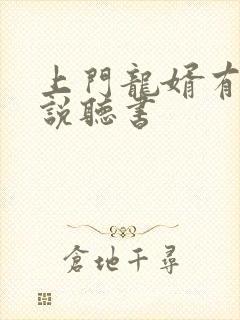 上門龍婿有
說聽書
倉地千尋